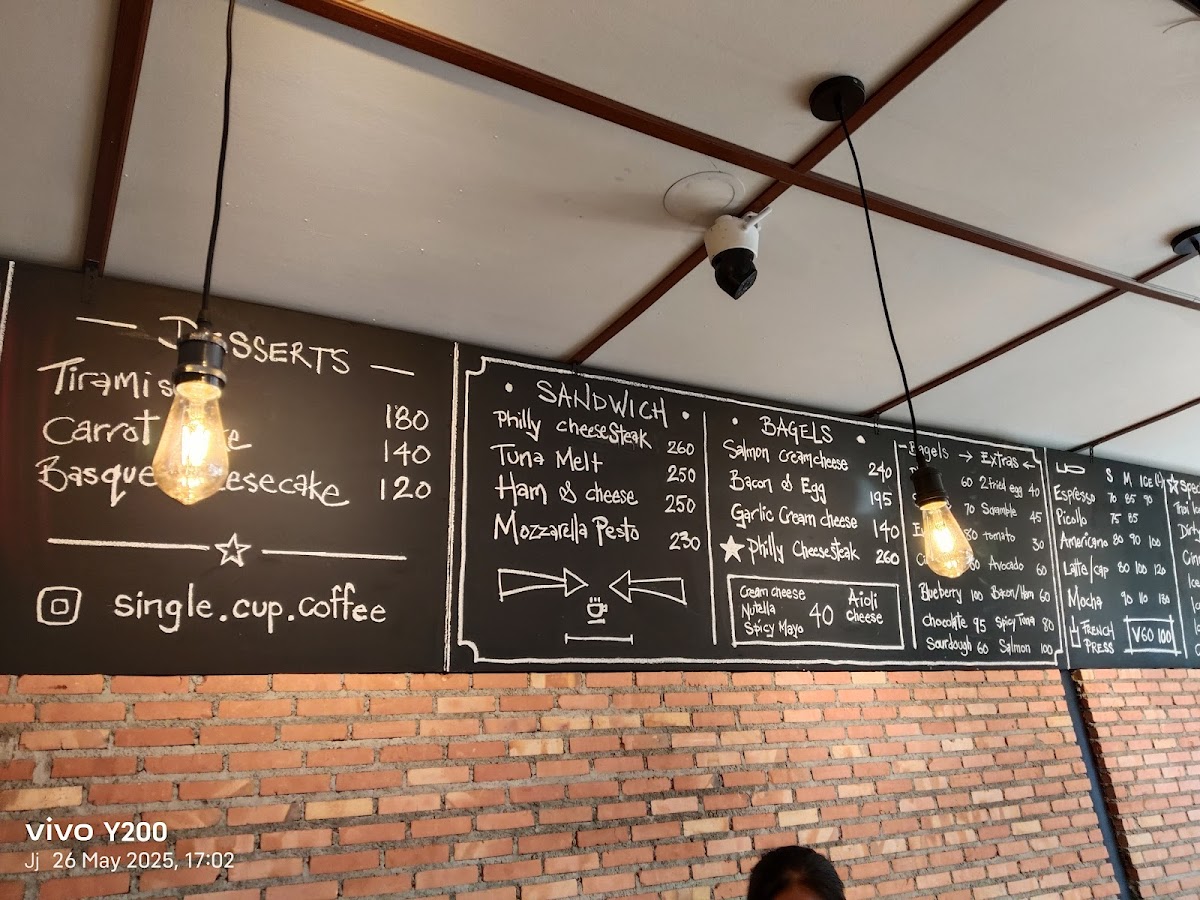 — DESSERTS —
Tiramis 180
Carrot 140
Basque eesecake 120
single.cup.coffee
• SANDWICH •
Philly cheese steak 260
Tuna Melt 250
Ham & cheese 250
Mozzarella Pesto 230
• BAGELS •
Salmon creamcheese 240
Bacon & Egg 195
Garlic Cream cheese 140
★ Philly Cheesesteak 260
Cream cheese
Nutella
Spicy Mayo
40
Aioli
cheese
Bagels → Extras ←
60 2 fried egg 40
70 Scramble 45
80 tomato 30
80 Avocado 60
Blueberry 100 Bacon/Ham 60
chocolate 95 Spicy Tuna 80
Sourdough 60 Salmon 100
S M ICE
Espresso 70 85 90
Picollo 75 85
Americano 80 90 100
Latte/cap 80 100 120
Mocha 90 110 130
FRENCH
PRESS
V60 100
vivo Y200
Jj 26 May 2025, 17:02